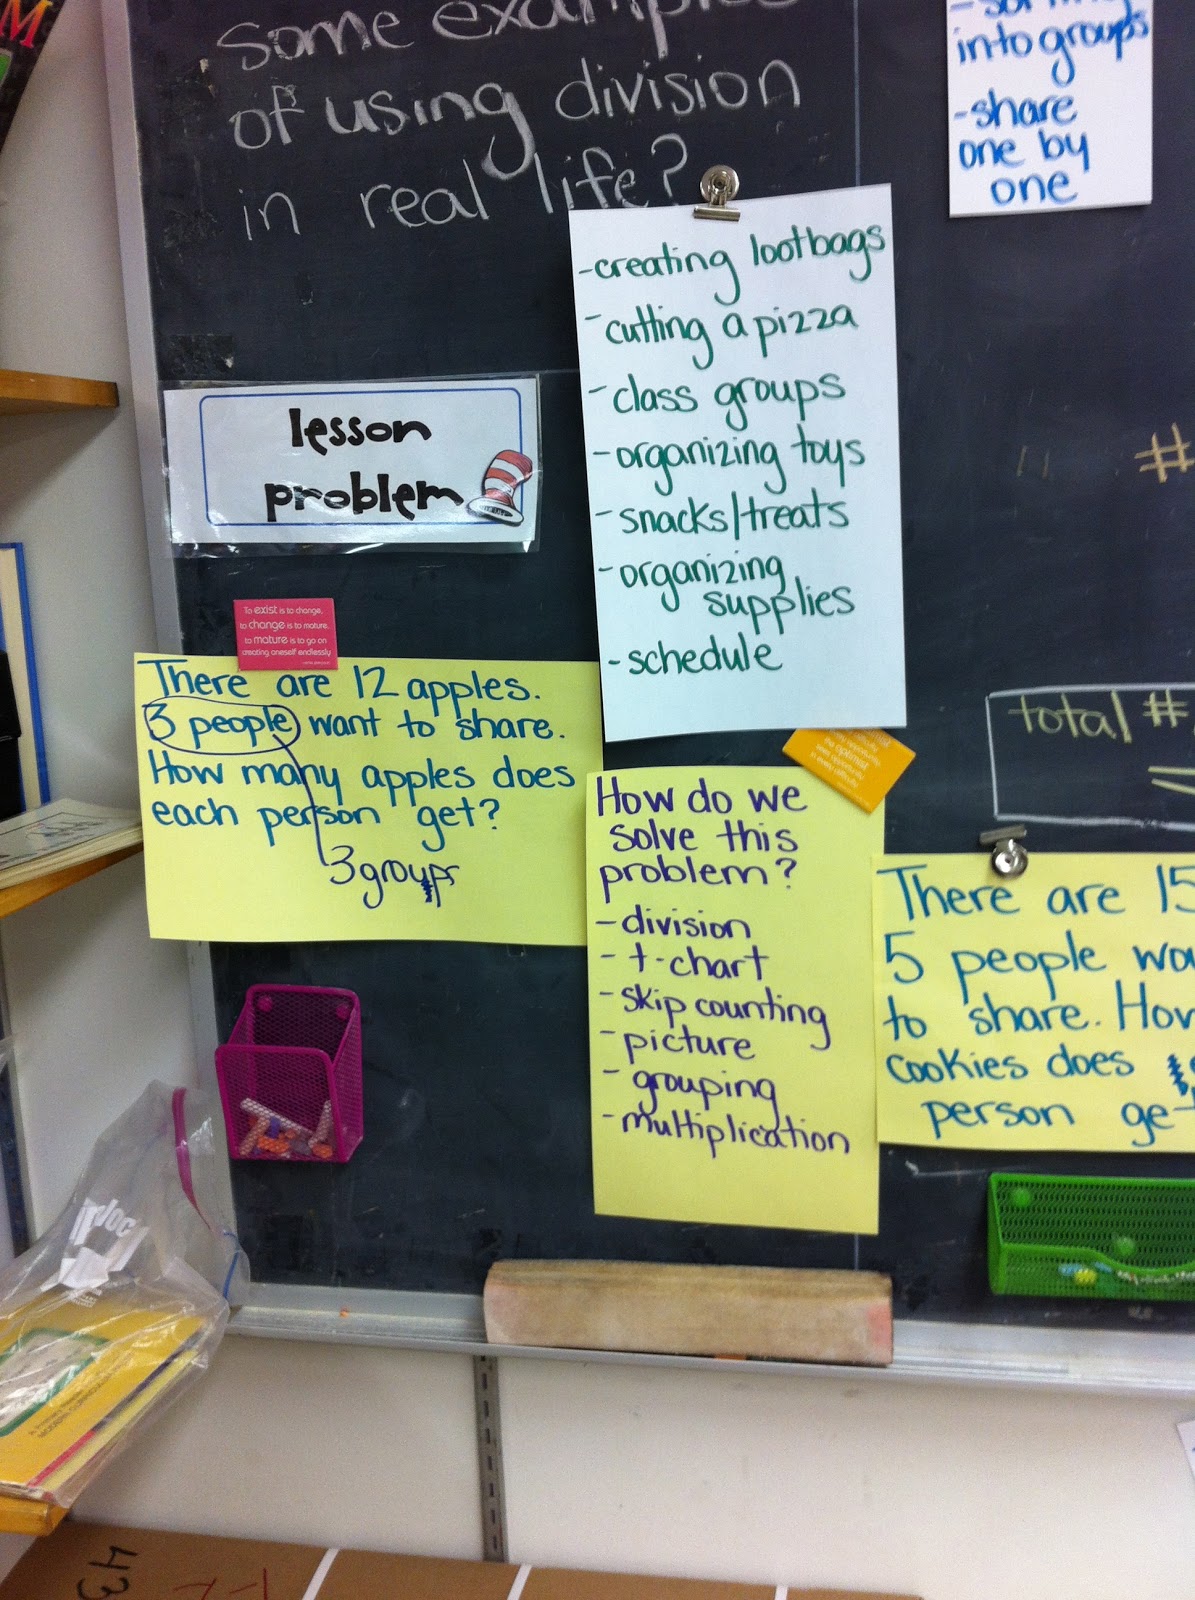 Some examples
of using division
in real life?
into groups
-share
one by
one
-creating lootbags
-cutting a pizza
-class groups
-organizing toys
-snacks/treats
-organizing
supplies
-schedule
lesson
problem
To exist is to change,
to change is to mature,
to mature is to go on
creating oneself endlessly
There are 12 apples.
3 people want to share.
How many apples does
each person get?
3 groups
How do we
solve this
problem?
-division
-t-chart
-skip counting
-picture
-grouping
-multiplication
#
total #
There are 15
5 people
to share. How
cookies does
person get
43